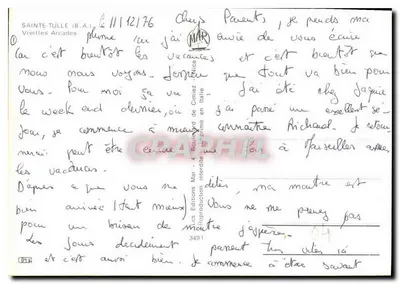 SAINTE-TULLE (B.A.)
Vieilles Arcades
11/12/76 Chers Parents, je prends ma
plume car j'ai envie de vous écrire
car c'est bientôt les vacances et c'est bientôt que
nous nous voyons. J'espère que tout va bien pour
vous. Pour moi ça va J'ai été chez
le week end dernier, où j'ai passé un excellent sé-
jour, je commence à mieux connaître Richard. Je
peut être encore une fois à Marseilles
les vacances.
D'après ce que vous me dites, ma montre est
bien arrivée (tant mieux) Vous ne me prenez pas
pour un briseur de montre j'espère.
Les jours décidément passent très vites ici
et c'est aussi bien. Je commence à être
MAR
Les Editions Mar
Reproduction interdite
en Italie
CPARAMA